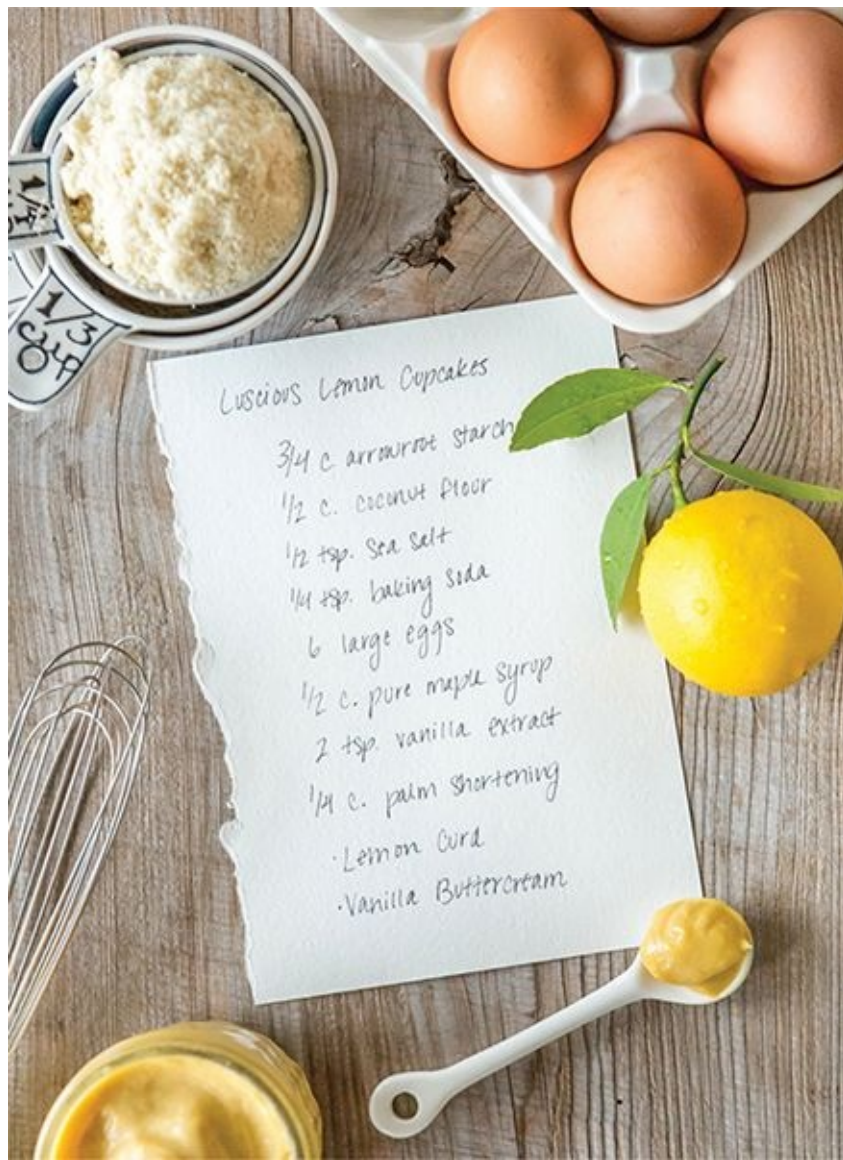 1/4
1/3
cup
Luscious Lemon Cupcakes
3/4 c arrowroot starch
1/2 c. coconut flour
1/2 tsp. sea salt
1/4 tsp. baking soda
6 large eggs
1/2 c. pure maple syrup
2 tsp. vanilla extract
1/4 c. palm shortening
·Lemon Curd
·Vanilla Buttercream